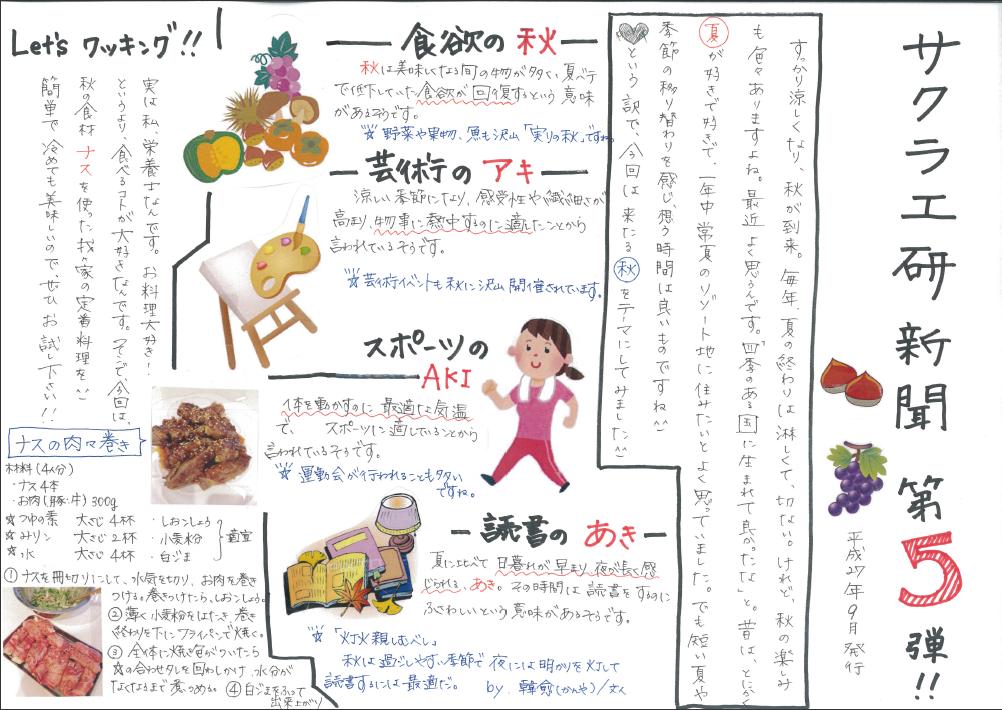 サクラエ研新聞 第5弾!!
平成27年9月発行
すっかり涼しくなり、秋が到来。毎年、夏の終わりは淋しくて、切ない。けれど、秋の楽しみ
も色々ありますよね。最近よく思うんです。『四季のある国に生まれて良かったな』と。昔は、とにかく
夏が好きで好きで、一年中常夏のリゾート地に住みたいとよく思っていました。でも短い夏や
季節の移り替わりを感じ、想う時間は良いものですね^^
という訳で、今回は来たる秋をテーマにしてみました^^
食欲の秋
秋は美味しくなる旬の物が多く、夏バテ
で低下していた食欲が回復するという意味
があるそうです。
☆野菜や果物、魚も沢山「実りの秋」ですね。
芸術のアキ
涼しい季節になり、感受性や繊細さが
高まり、物事に熱中するのに適したことから
言われているそうです。
☆芸術イベントも秋に沢山開催されています。
スポーツの
AKI
体を動かすのに最適な気温
で、スポーツに適していることから
言われているそうです。
☆運動会が行われることも多い
ですね。
読書のあき
夏に比べて日暮れが早まり、夜が長く感
じられる、あき。その時間は読書をするのに
ふさわしいという意味があるそうです。
☆「灯火親しむべし」
秋は過ごしやすい季節で夜には明かりを灯して
読書するには最適だ。 by. 韓愈(かんや)/文人
Let's クッキング!!
実は私、栄養士なんです。お料理大好き!
というより、食べるコトが大好きなんです。そこで、今回は、
秋の食材 ナスを使った我が家の定着料理を^^
簡単で、冷めても美味しいので、ぜひ、お試し下さい!!
ナスの肉々巻き
材料(4人分)
・ナス4本
・お肉(豚・牛)300g
☆つゆの素 大さじ4杯
☆みりン 大さじ2杯
☆水 大さじ4杯
・しおこしょう
・小麦粉
・白ごま
適宜
①ナスを冊切りにして、水気を切り、お肉を巻き
つける。巻きつけたら、しおこしょう。
②薄く小麦粉をはたき、巻き
終わりを下にフライパンで焼く。
③全体に焼き色がついたら
☆の合わせタレを回しかけ、水分が
なくなるまで煮つめる。④白ごまをふって
出来上がり